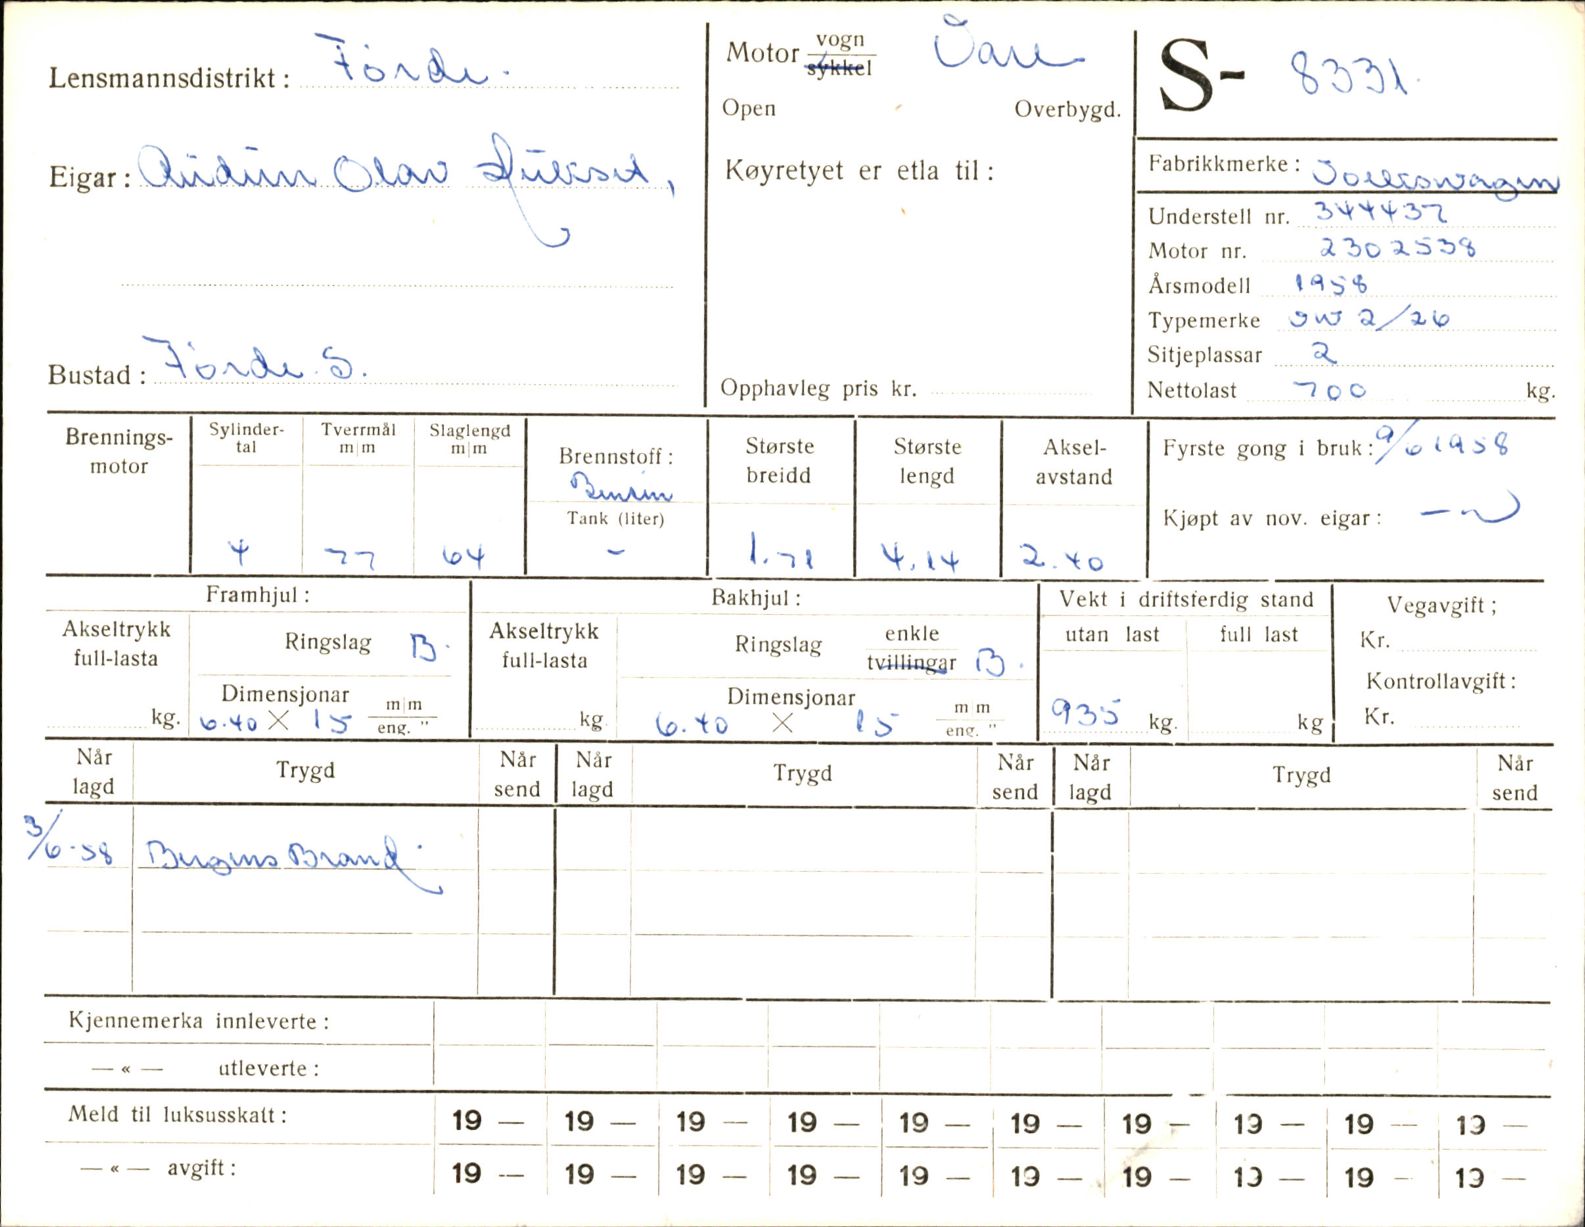 Lensmannsdistrikt: Förde.
Motor vogn sykkel Vare
S- 8331.
Open Overbygd.
Eigar: Audun Olav
Køyretyet er etla til:
Fabrikkmerke: Volkswagen
Understell nr. 344437
Motor nr. 2302538
Årsmodell 1958
Typemerke VW 2/26
Sitjeplassar 2
Bustad: Förde S.
Opphavleg pris kr.
Nettolast 700 kg.
Brennings-motor
Sylinder-tal 4
Tverrmål m|m 77
Slaglengd m|m 64
Brennstoff: Bensin
Tank (liter) -
Største breidd 1.71
Største lengd 4.14
Aksel-avstand 2.40
Fyrste gong i bruk: 9/6 1958
Kjøpt av nov. eigar: —"—
Framhjul:
Akseltrykk full-lasta kg.
Ringslag B.
Dimensjonar 6.40 X 15 m|m eng. "
Bakhjul:
Akseltrykk full-lasta kg
Ringslag enkle tvillingar B.
Dimensjonar 6.40 X 15 m m eng. "
Vekt i driftsferdig stand
utan last full last
935 kg. kg
Vegavgift;
Kr.
Kontrollavgift:
Kr.
Når lagd Trygd Når send Når lagd Trygd Når send Når lagd Trygd Når send
3/6-58 Bergens Brand
Kjennemerka innleverte:
— « — utleverte:
Meld til luksusskatt: 19 — 19 — 19 — 19 — 19 — 19 — 19 — 19 — 19 — 19 —
— « — avgift: 19 — 19 — 19 — 19 — 19 — 19 — 19 — 19 — 19 — 19 —